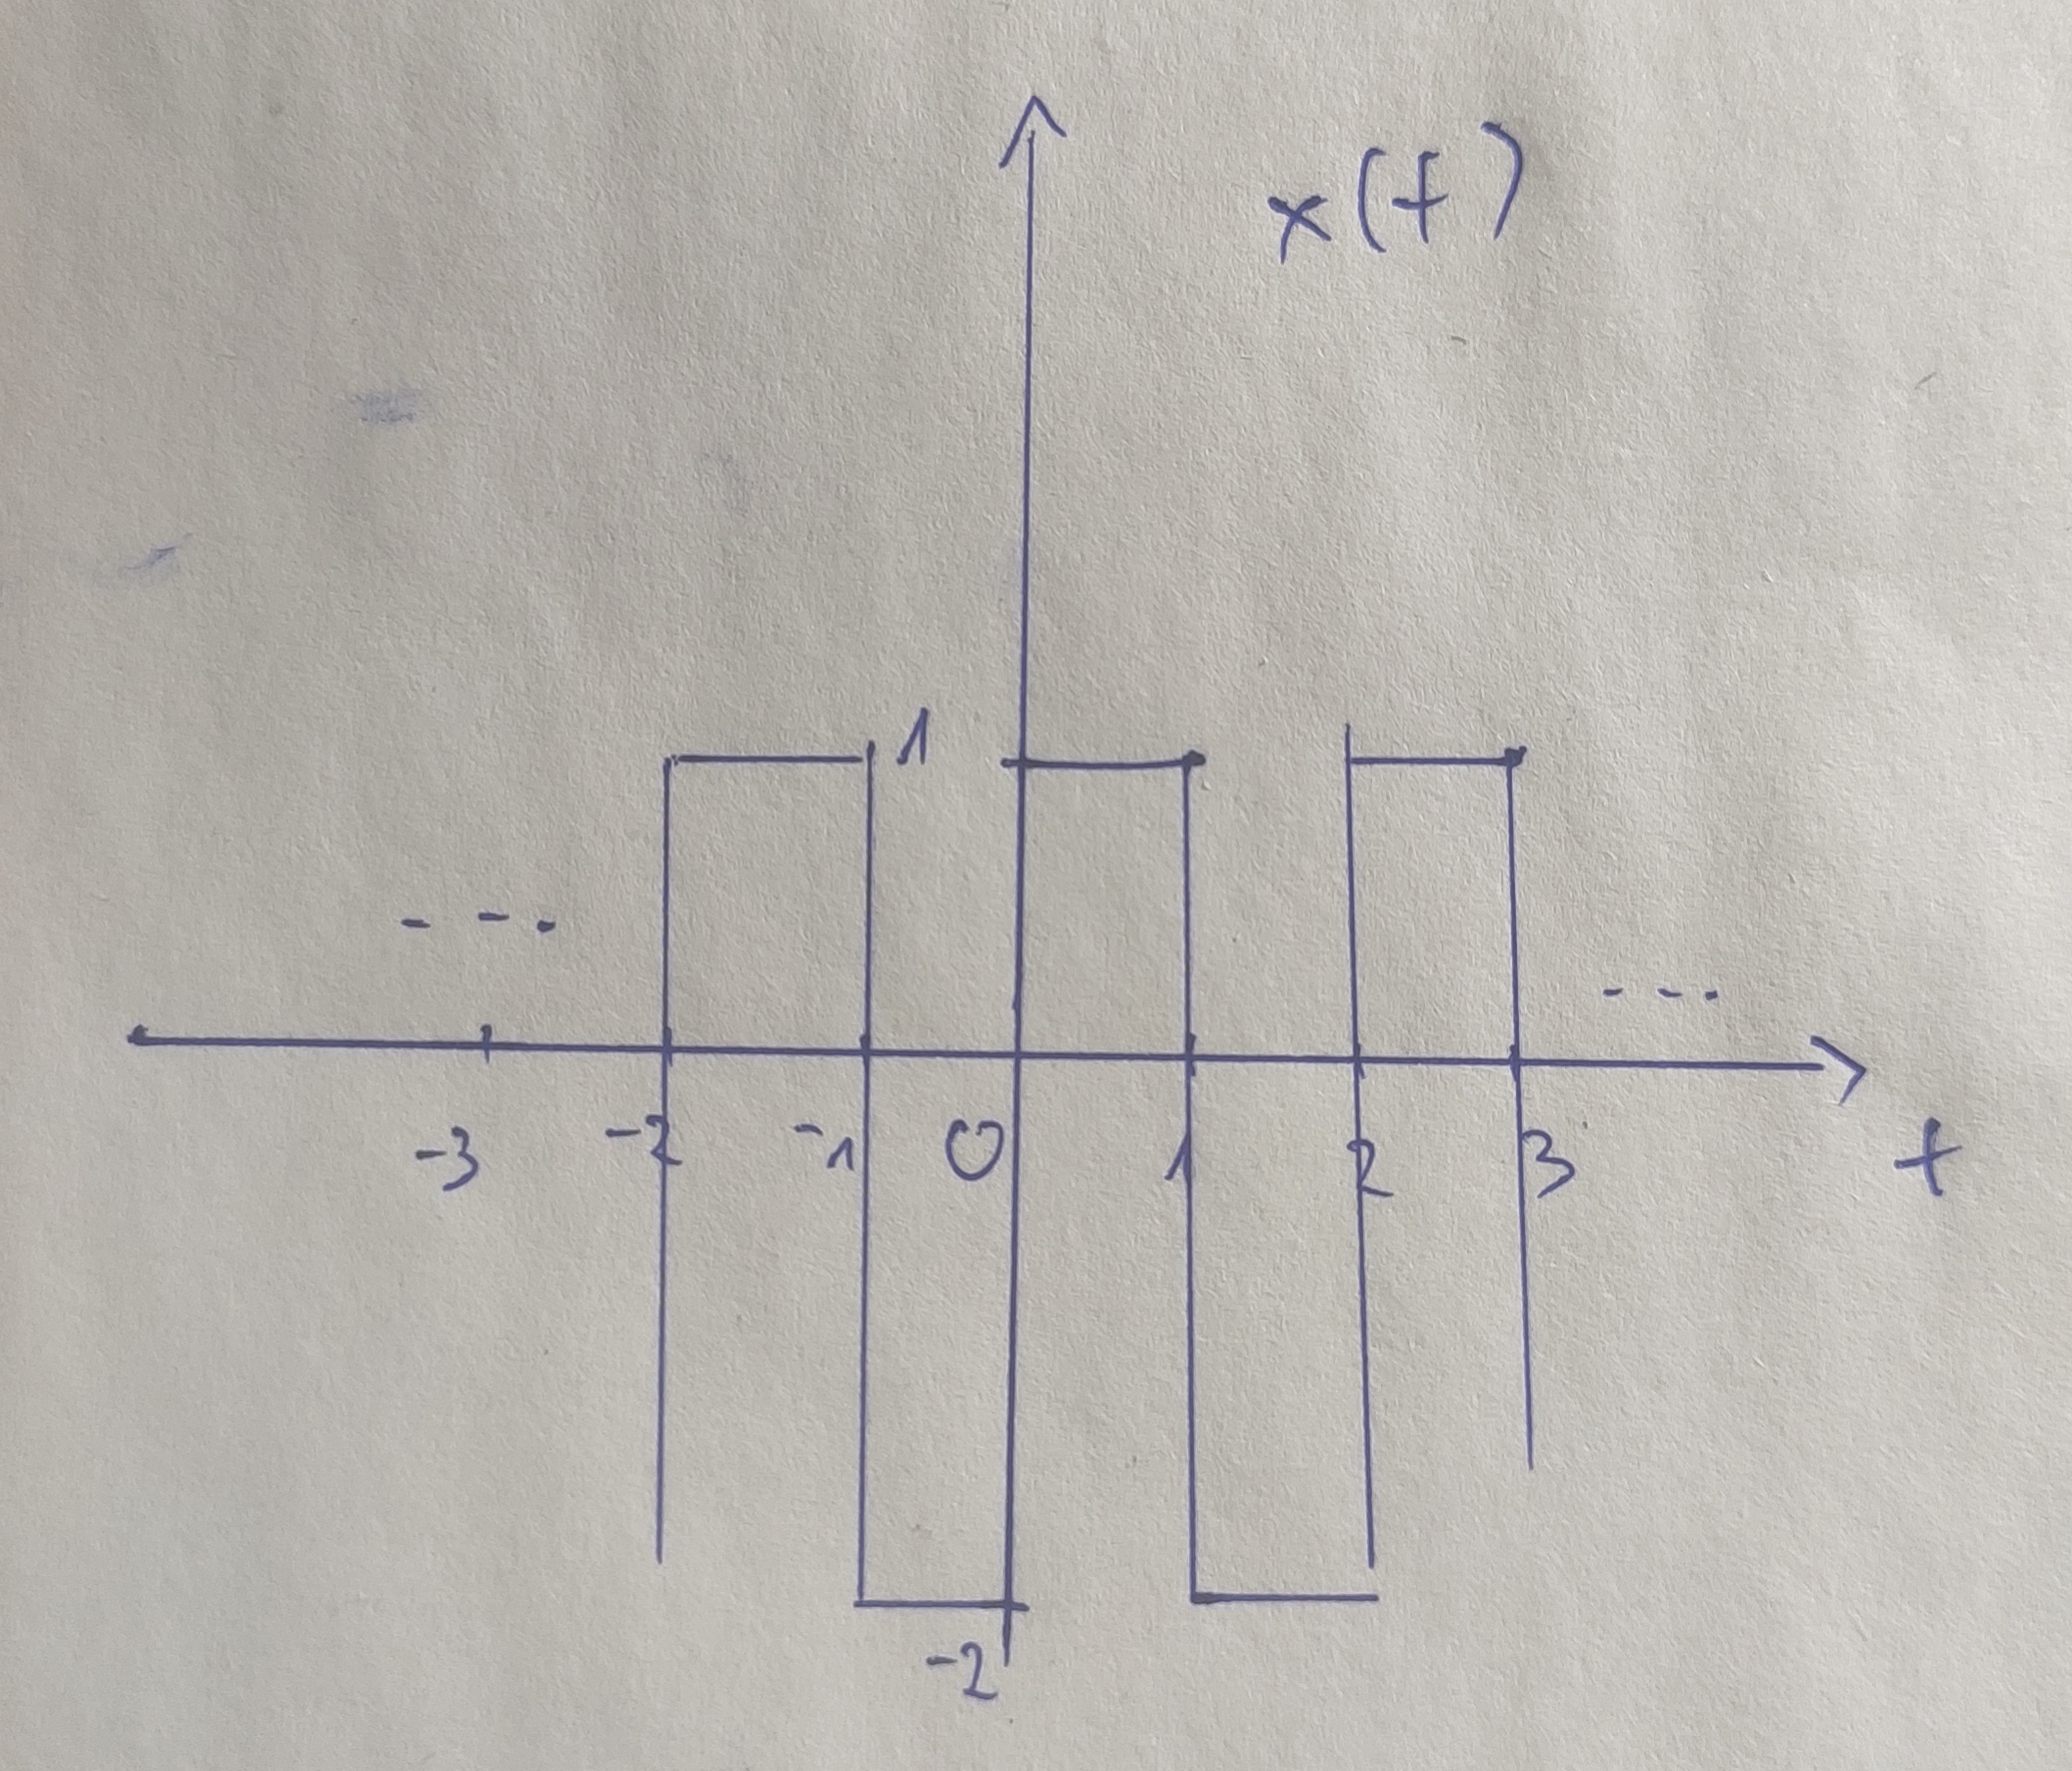 x(t)
1
- - -
- - -
-3 -2 -1 0 1 2 3 t
-2